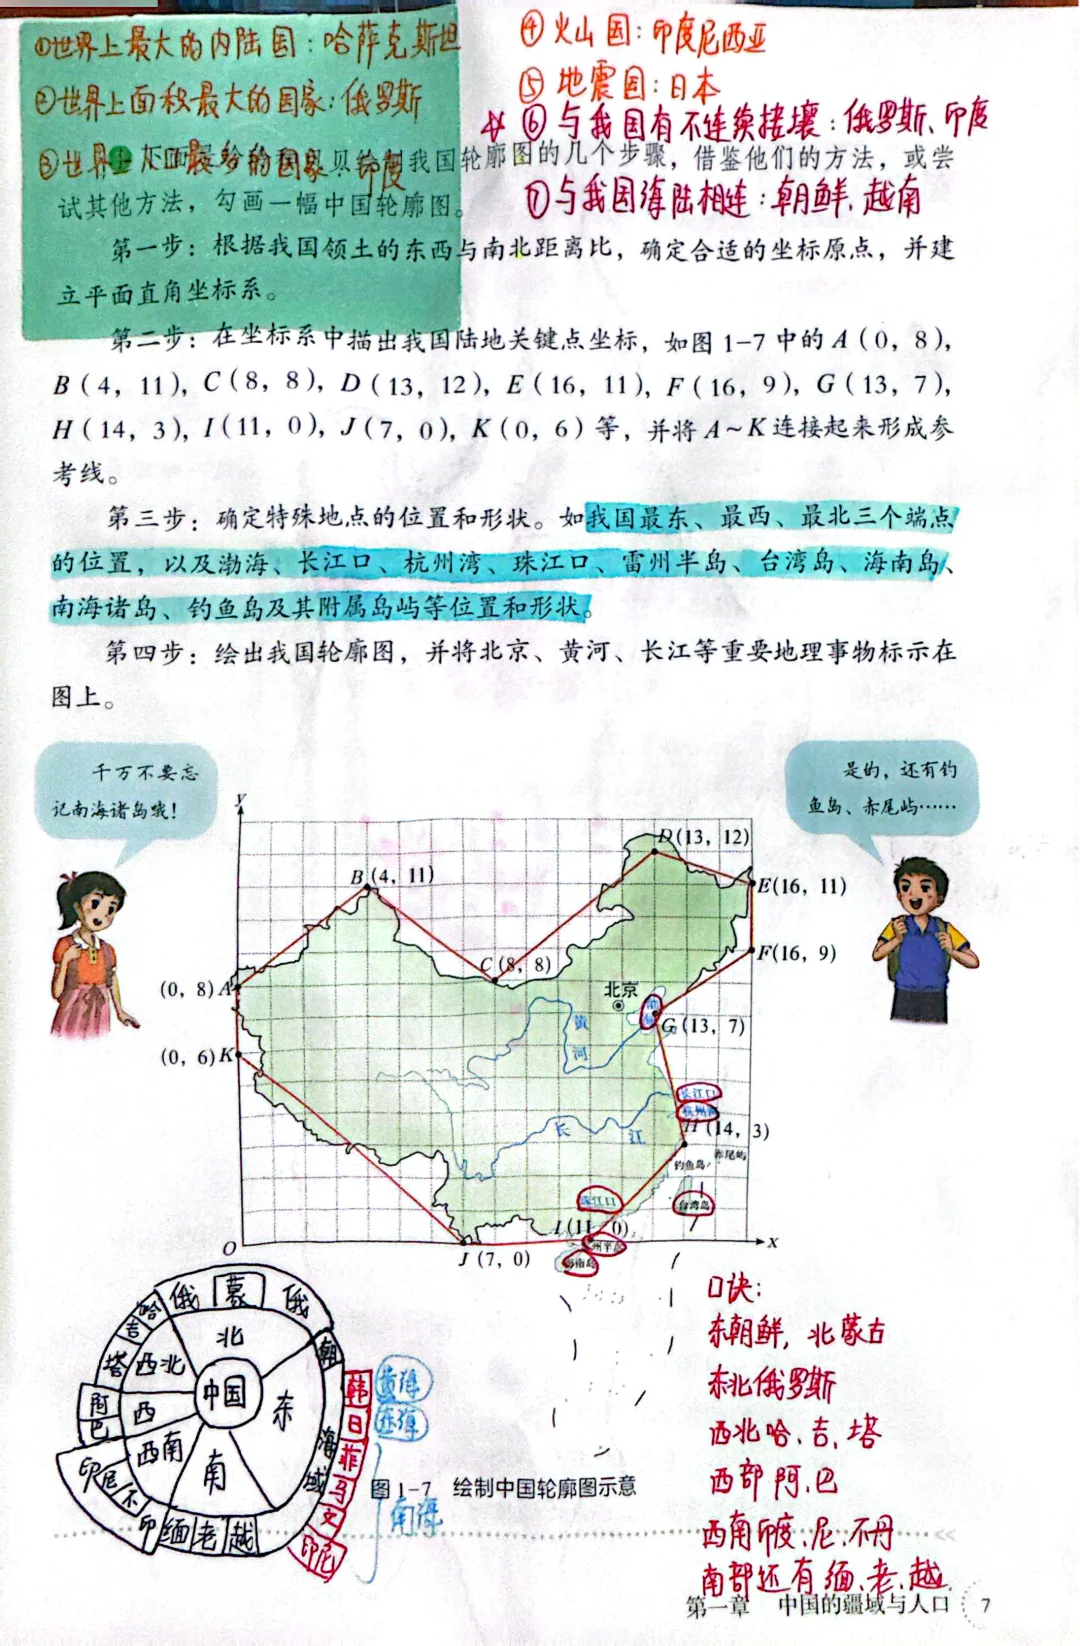 ①世界上最大的内陆国：哈萨克斯坦
②世界上面积最大的国家：俄罗斯
④火山国：印度尼西亚
⑤地震国：日本
☆⑥与我国有不连续接壤：俄罗斯、印度
我国轮廓图的几个步骤，借鉴他们的方法，或尝
试其他方法，勾画一幅中国轮廓图。
⑦与我国海陆相连：朝鲜、越南
第一步：根据我国领土的东西与南北距离比，确定合适的坐标原点，并建
立平面直角坐标系。
第二步：在坐标系中描出我国陆地关键点坐标，如图1-7中的A（0，8），
B（4，11），C（8，8），D（13，12），E（16，11），F（16，9），G（13，7），
H（14，3），I（11，0），J（7，0），K（0，6）等，并将A~K连接起来形成参
考线。
第三步：确定特殊地点的位置和形状。如我国最东、最西、最北三个端点
的位置，以及渤海、长江口、杭州湾、珠江口、雷州半岛、台湾岛、海南岛、
南海诸岛、钓鱼岛及其附属岛屿等位置和形状。
第四步：绘出我国轮廓图，并将北京、黄河、长江等重要地理事物标示在
图上。
千万不要忘
记南海诸岛哦！
是的，还有钓
鱼岛、赤尾屿……
y
D(13，12)
B(4，11)
E(16，11)
C(8，8)
F(16，9)
(0，8)A
北京
渤海
G(13，7)
黄
河
(0，6)K
长江口
杭州湾
H(14，3)
长 江
钓鱼岛
赤尾屿
珠江口
台湾岛
I(11，0)
O
x
J(7，0)
海南岛
俄 蒙 俄
哈
吉
塔
阿
巴
印
尼
不
印
缅 老 越
朝
海
域
北
西北
西
西南
南
东
中国
韩
日
菲
马
文
印尼
黄海
东海
南海
图1-7 绘制中国轮廓图示意
口诀：
东朝鲜，北蒙古
东北俄罗斯
西北哈、吉、塔
西部阿、巴
西南印度、尼、不丹
南部还有缅、老、越
第一章 中国的疆域与人口 7